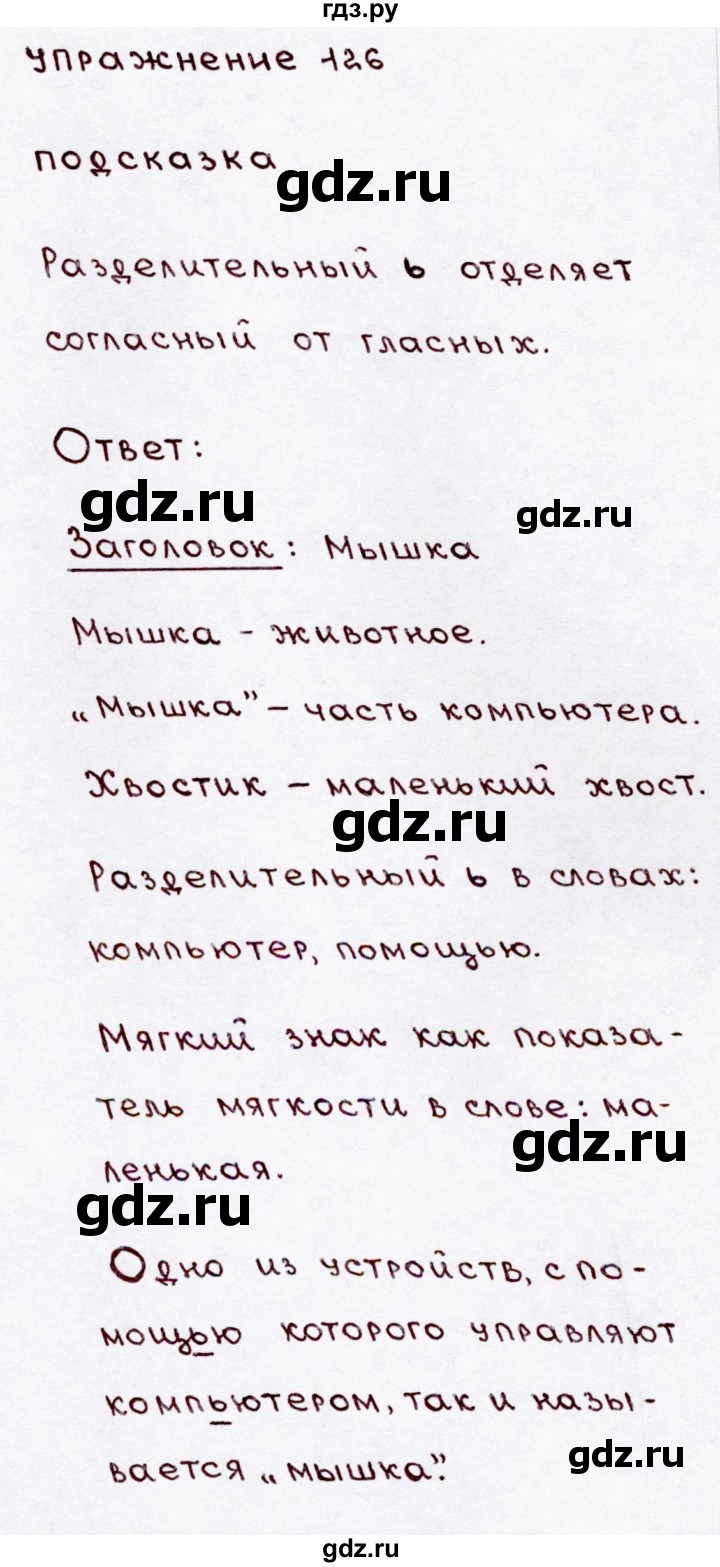 гдз.ру
упражнение 126
подсказка
gdz.ru
Разделительный ь отделяет
согласный от гласных.
Ответ:
gdz.ru
gdz.ru
Заголовок: Мышка
Мышка - животное.
„Мышка” – часть компьютера.
Хвостик – маленький хвост.
gdz.ru
Разделительный ь в словах:
компьютер, помощью.
Мягкий знак как показа-
тель мягкости в слове: ма-
gdz.ru
ленькая.
gdz.ru
Одно из устройств, с по-
мощью которого управляют
компьютером, так и назы-
gdz.ru
вается „мышка”.
gdz.ru